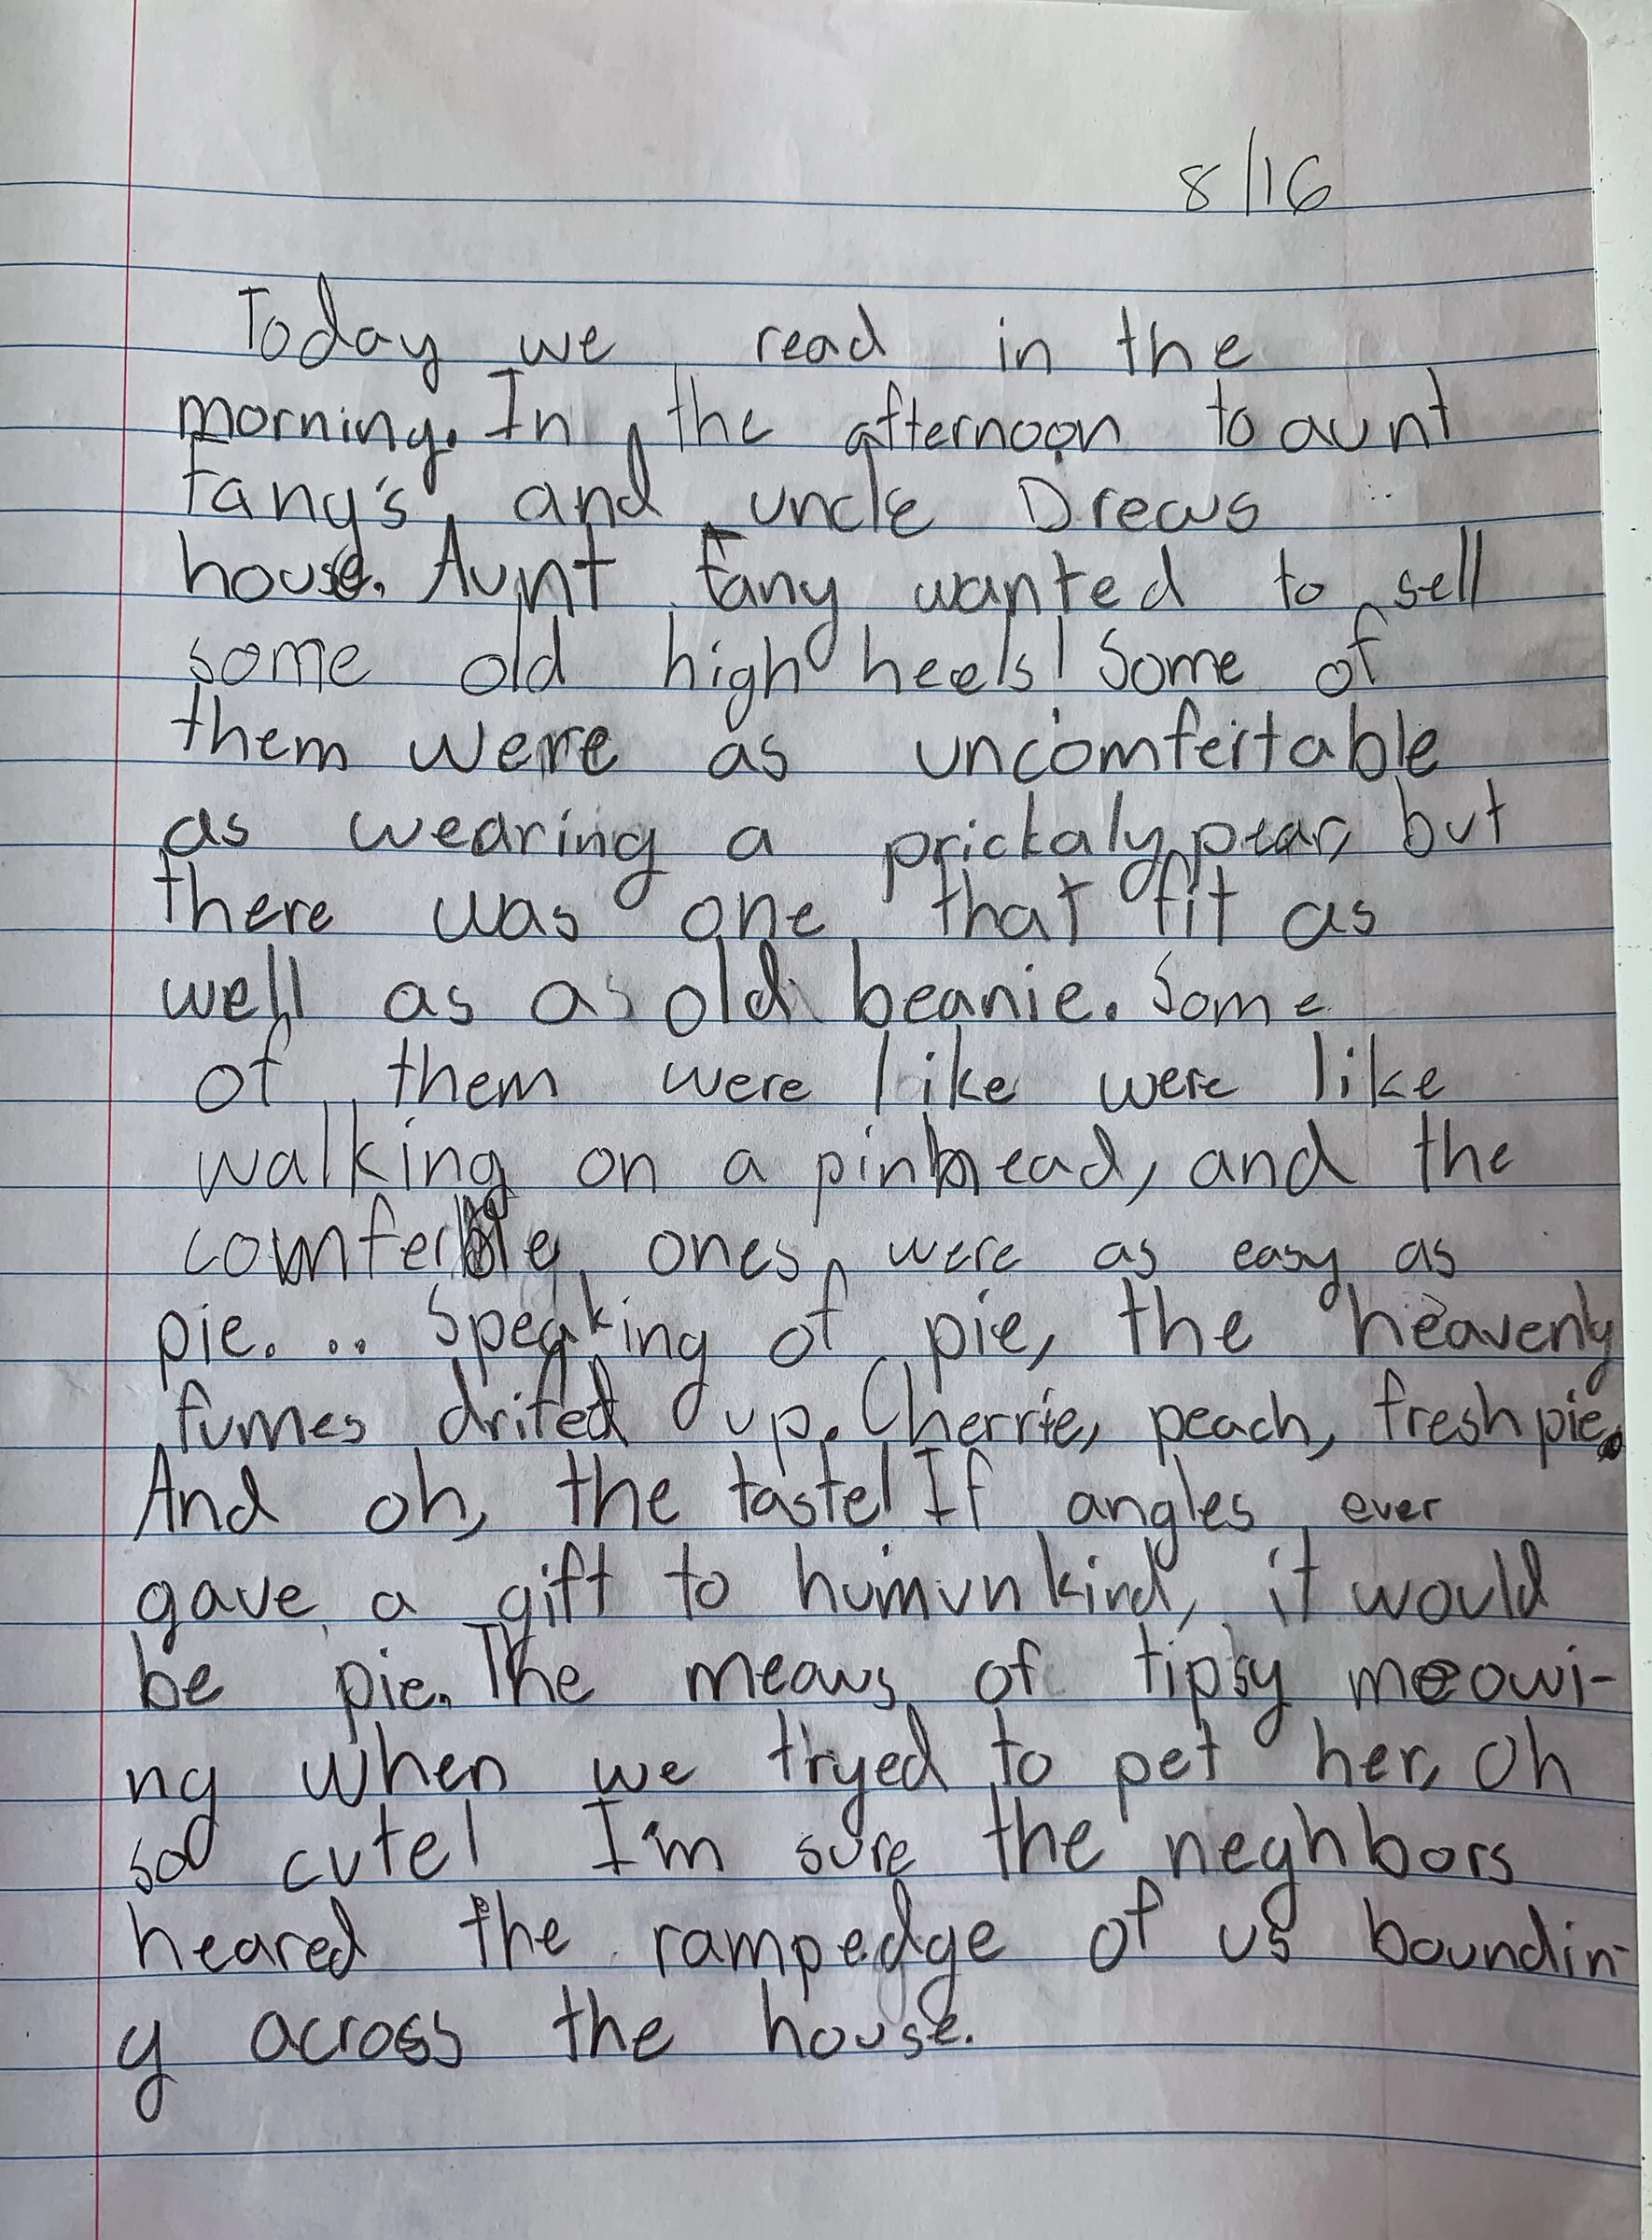 8/16
Today we read in the
morning. In the afternoon to aunt
Fany's and uncle Drews
house. Aunt Fany wanted to sell
some old high heels! Some of
them were as uncomfertable
as wearing a prickaly pear, but
there was one that fit as
well as as old beanie. Some
of them were like were like
walking on a pinhead, and the
comferble ones were as easy as
pie... Speaking of pie, the heavenly
fumes drifed up. Cherrie, peach, fresh pie.
And oh, the taste! If angles ever
gave a gift to humunkind, it would
be pie. The meows of tipsy meowi-
ng when we tryed to pet her, oh
so cute! I'm sure the neghbors
heared the rampedge of us boundin-
g across the house.